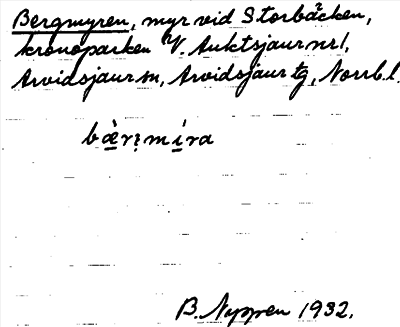 Bergmyren, myr vid Storbäcken,
kronoparken V. Auktsjaur nr 1,
Arvidsjaur sn, Arvidsjaur tg, Norrb. l.
bæ̀rịmíra
B. Nyppen 1932.